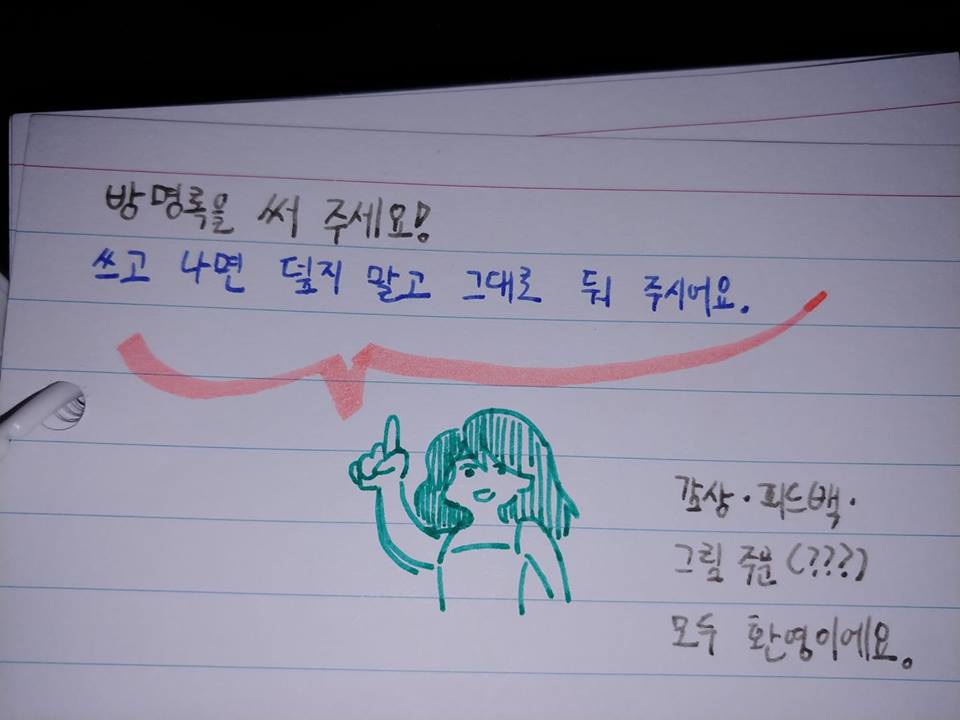 방명록을 써 주세요!
쓰고 나면 덮지 말고 그대로 둬 주시어요.
감상·피드백·
그림 주문(???)
모두 환영이에요.